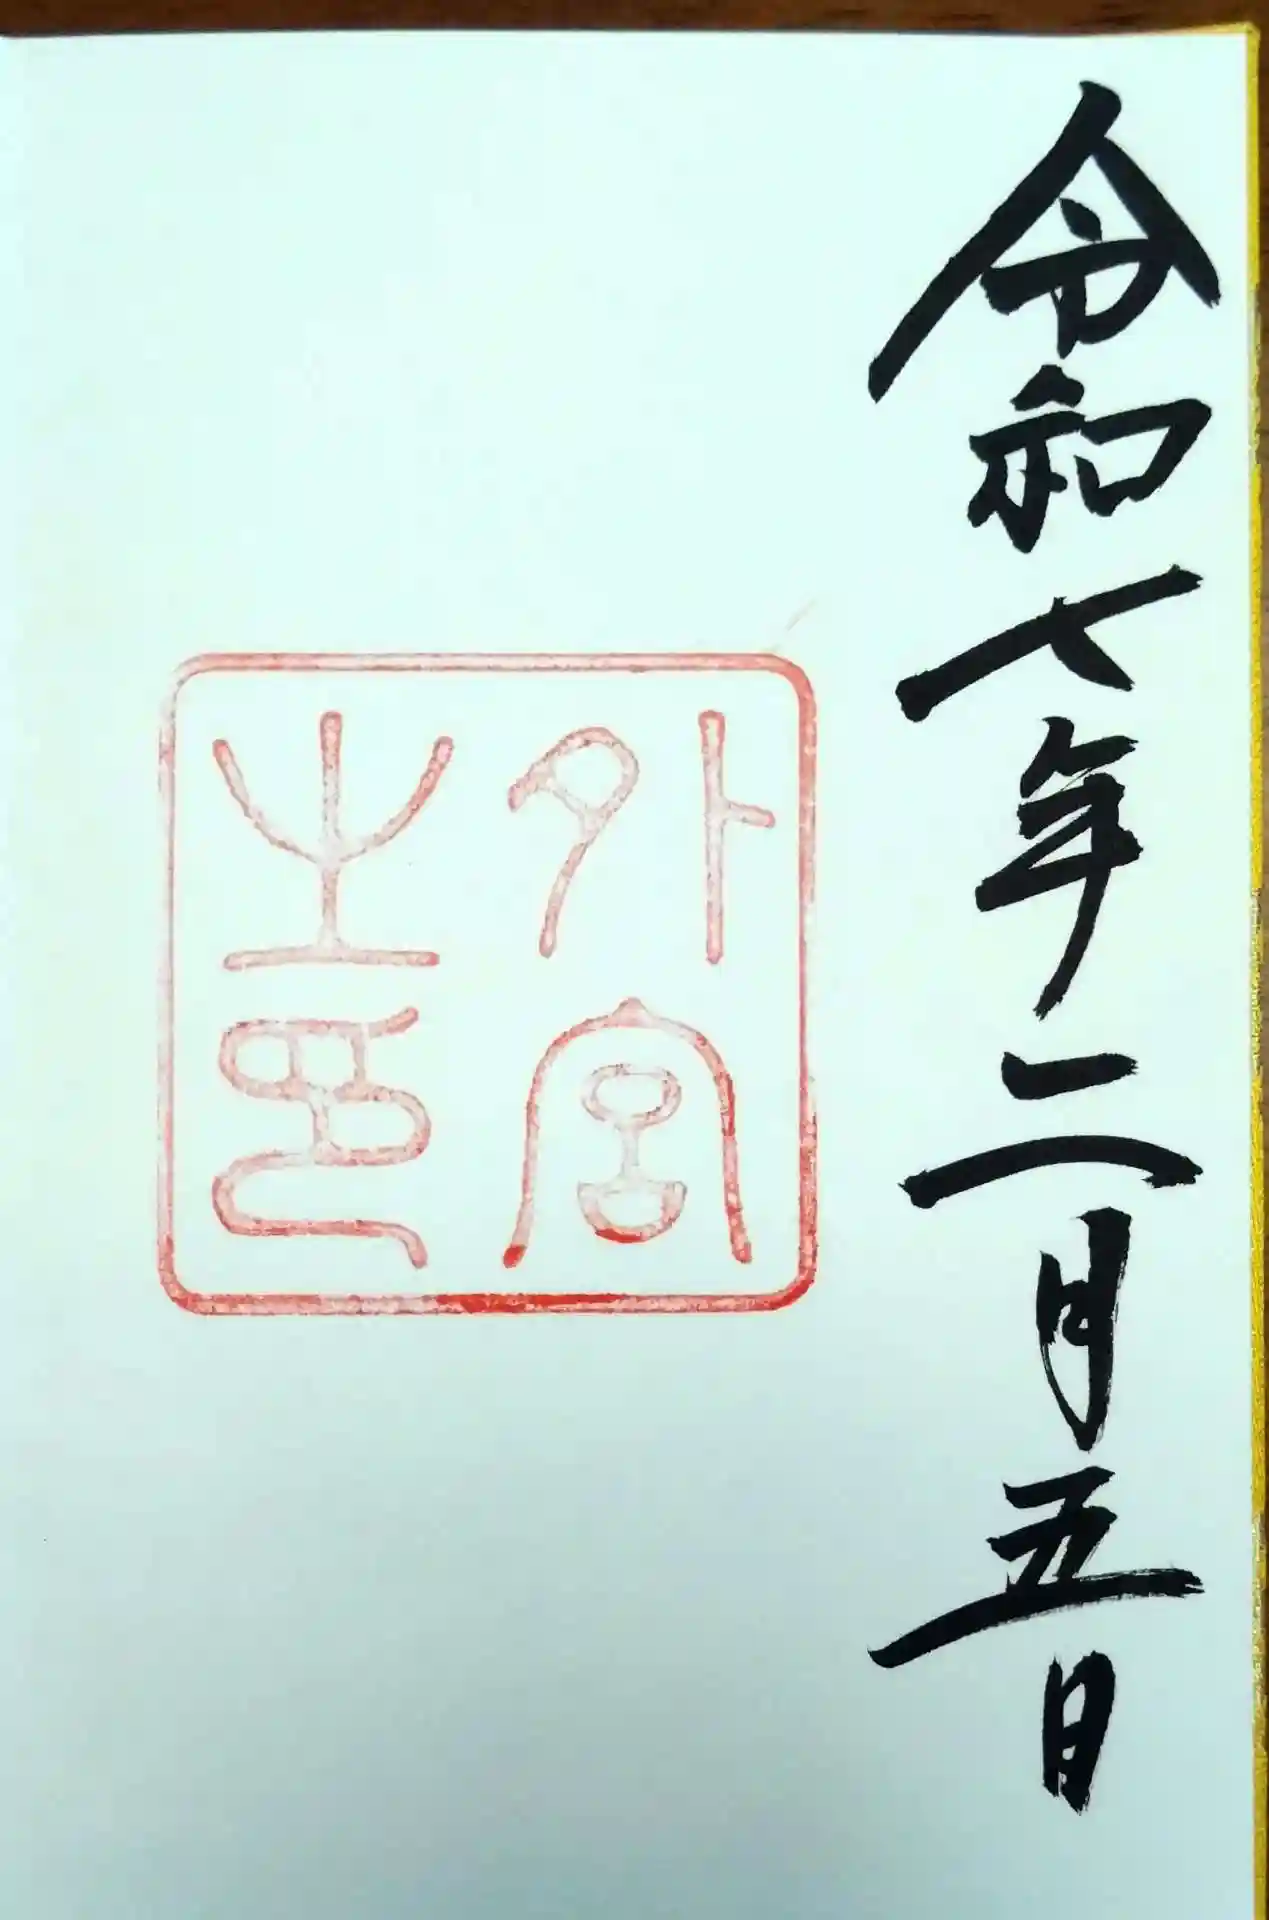 令和七年二月五日
外宮
之印